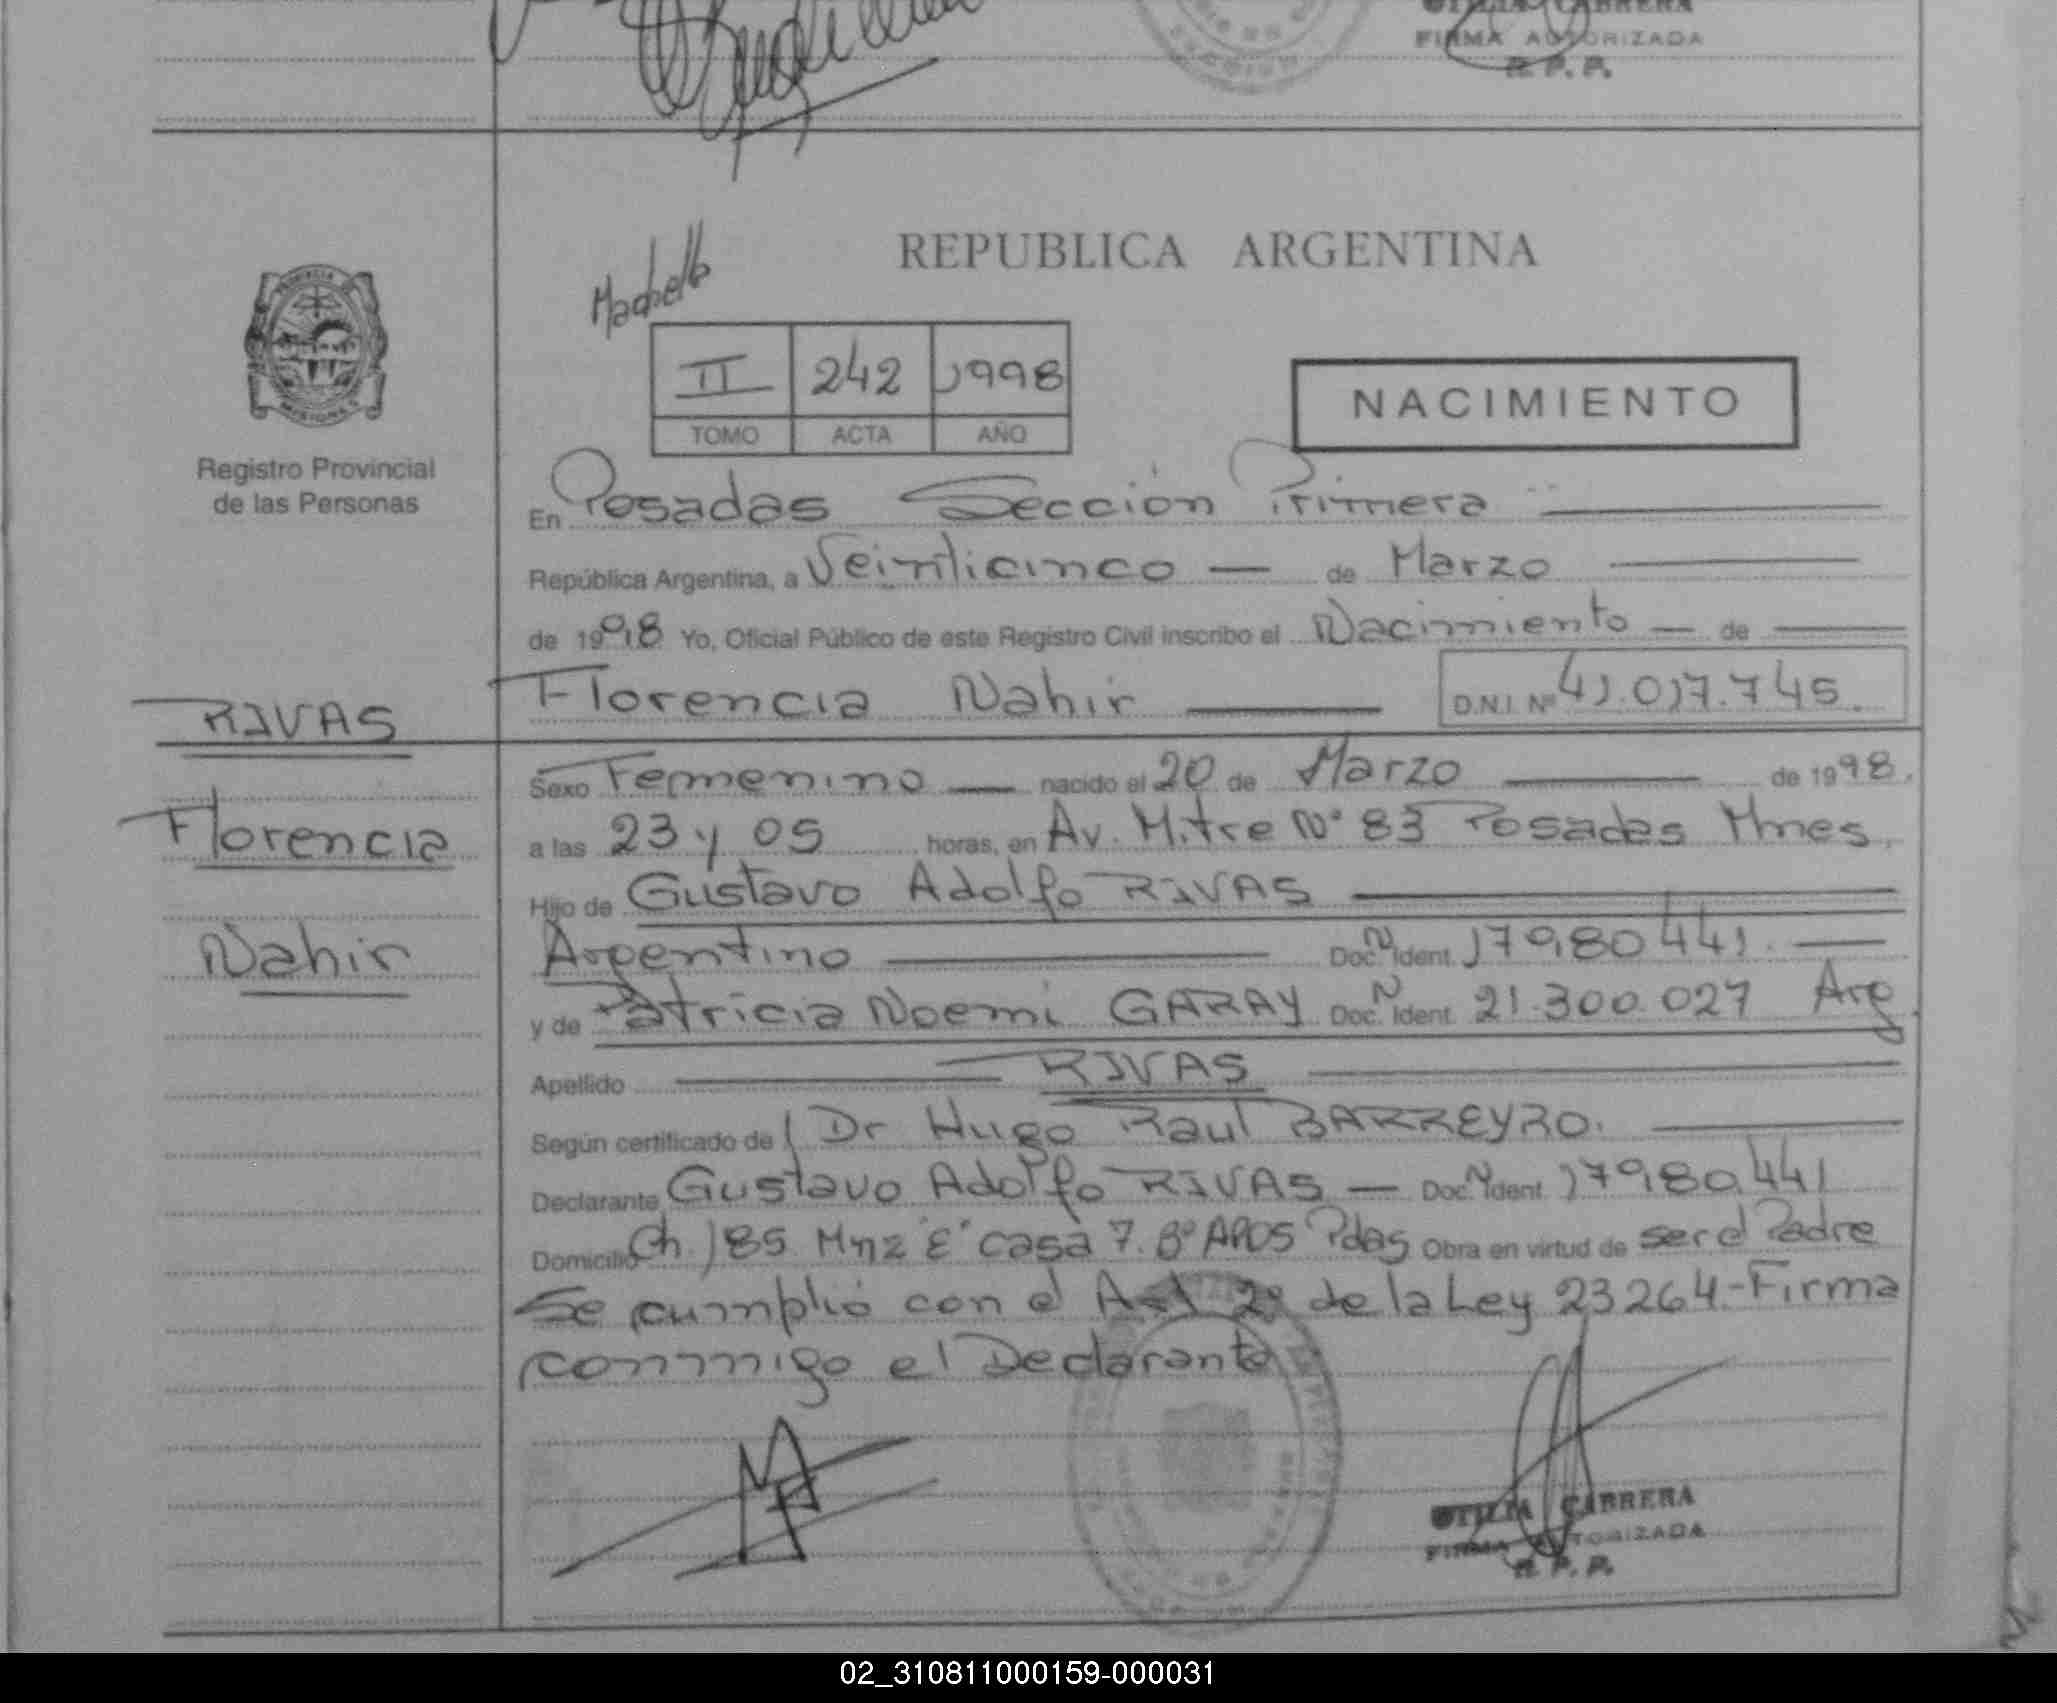 OTILIA CABRERA
FIRMA AUTORIZADA
R. P. P.
REPUBLICA ARGENTINA
II 242 1998
TOMO ACTA AÑO
NACIMIENTO
PROVINCIA
MISIONES
Registro Provincial
de las Personas
En Posadas Sección Primera
República Argentina, a Veinticinco — de Marzo
de 1998 Yo, Oficial Público de este Registro Civil inscribo el Nacimiento — de
Florencia Nahir D.N.I. Nº 41.017.745.
RIVAS
Florencia
Nahir
Sexo Femenino — nacido el 20 de Marzo de 1998.
a las 23 y 05 horas, en Av. Mitre Nº 83 Posadas Mnes.
Hijo de Gustavo Adolfo RIVAS
Argentino Doc. N Ident. 17980441.
y de Patricia Noemi GARAY Doc. N Ident. 21.300.027 Arg
Apellido RIVAS
Según certificado de Dr Hugo Raul BARREYRO.
Declarante Gustavo Adolfo RIVAS — Doc. N Ident. 17980441
Domicilio Ch. 185 Mnz "E" casa 7. Bº APOS Pdas Obra en virtud de ser el Padre
Se cumplió con el Art 2º de la Ley 23264.-Firma
conmigo el Declarante
OTILIA CABRERA
FIRMA AUTORIZADA
R. P. P.
02_310811000159-000031